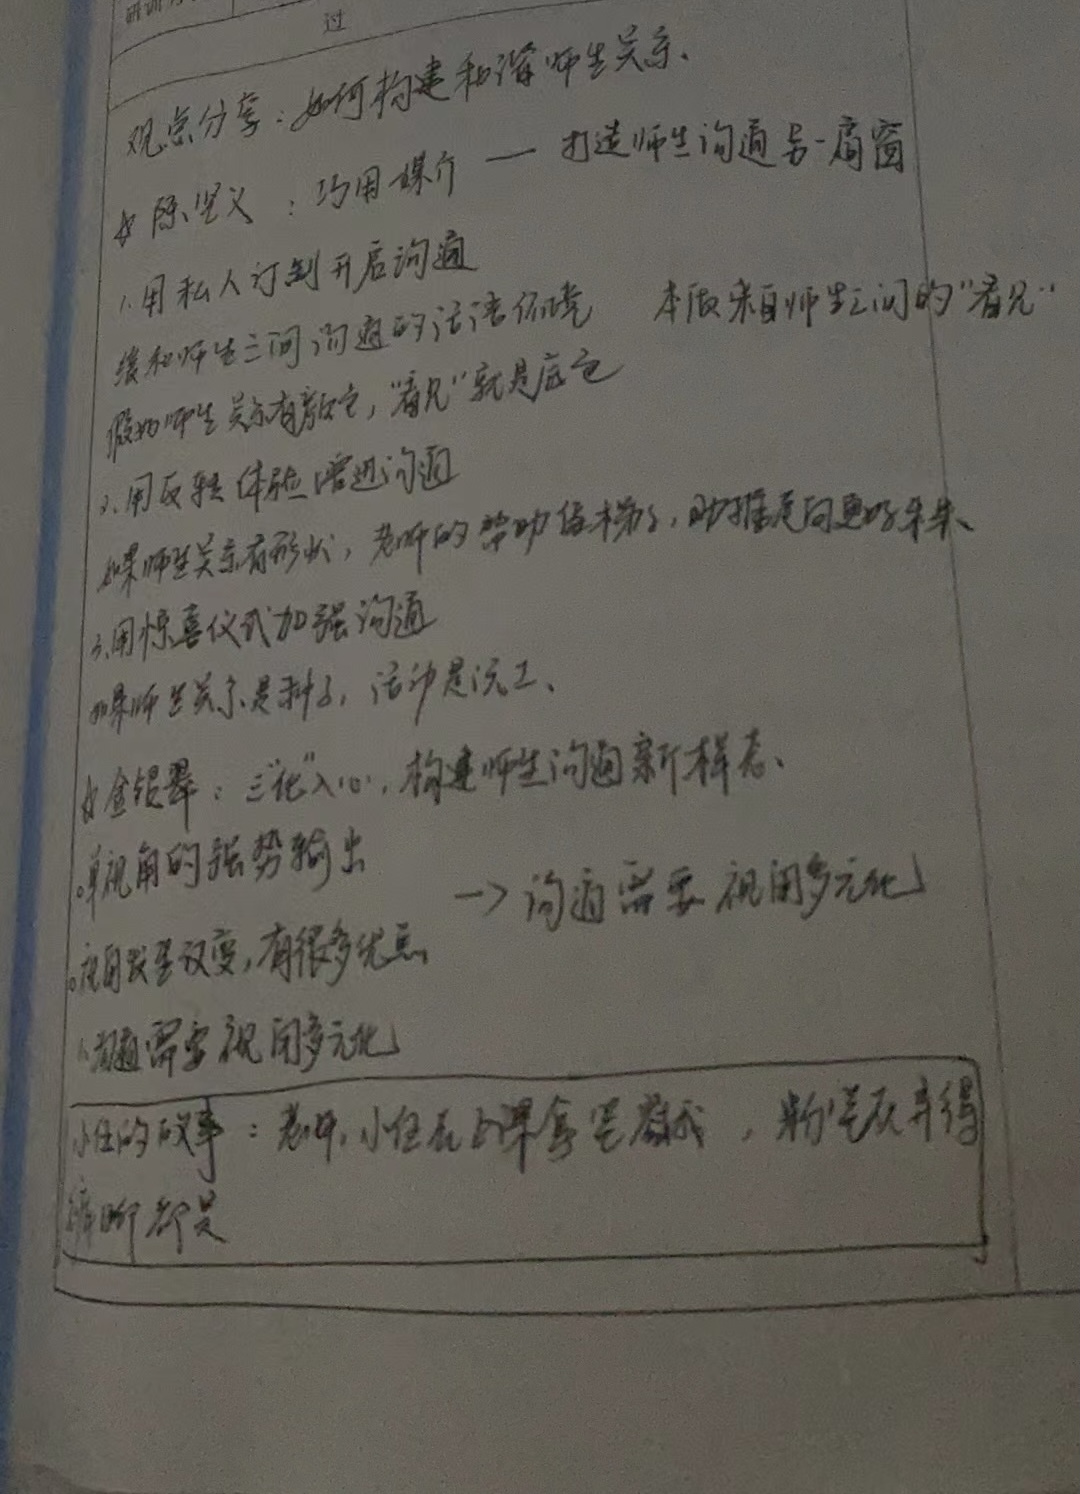 过
观点分享：如何构建和谐师生关系、
☆ 陈坚义：巧用媒介 — 打造师生沟通另一扇窗
1.用私人订制开启沟通
缓和师生之间沟通的话语 本版来自师生之间的“看见”
假如师生关系有颜色，“看见”就是底色
2.用反转体验增进沟通
如果师生关系有形状，老师的帮助像梯子，助推走向更好未来、
3.用惊喜仪式加强沟通
如果师生关系是种子，活动是沃土、
☆金银翠：三“化”入心，构建师生沟通新样态、
单视角的强势输出
→ 沟通需要视角多元化
视角发生改变，有很多优点，
1.沟通需要视角多元化
小任的故事：老师，小任在上课拿笔戳我，粉笔灰弄得
裤脚都是